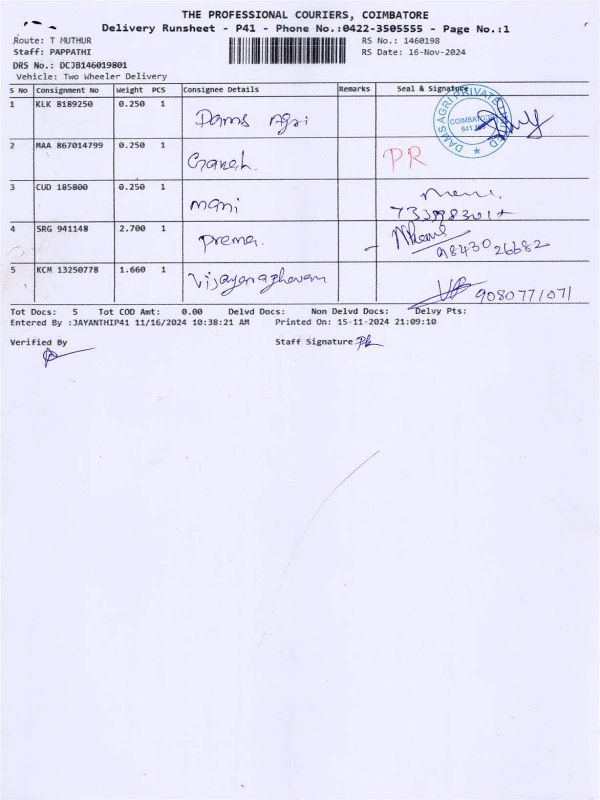 THE PROFESSIONAL COURIERS, COIMBATORE
Delivery Runsheet - P41 - Phone No.:0422-3505555 - Page No.:1
Route: T MUTHUR RS No.: 1460198
Staff: PAPPATHI RS Date: 16-Nov-2024
DRS No.: DCJB146019801
Vehicle: Two Wheeler Delivery
S No Consignment No Weight PCS Consignee Details Remarks Seal & Signature
1 KLK 8189250 0.250 1 Dams Agri
DAMS AGRI PRIVATE LIMITED
COIMBATORE
2 MAA 867014799 0.250 1 Ganesh. PR
3 CUD 185800 0.250 1 mani mani.
4 SRG 941148 2.700 1 Prema. 9843026682
5 KCM 13250778 1.660 1 Vijayaraghavan 9080771071
Tot Docs: 5 Tot COD Amt: 0.00 Delvd Docs: Non Delvd Docs: Delvy Pts:
Entered By :JAYANTHIP41 11/16/2024 10:38:21 AM Printed On: 15-11-2024 21:09:10
Verified By Staff Signature